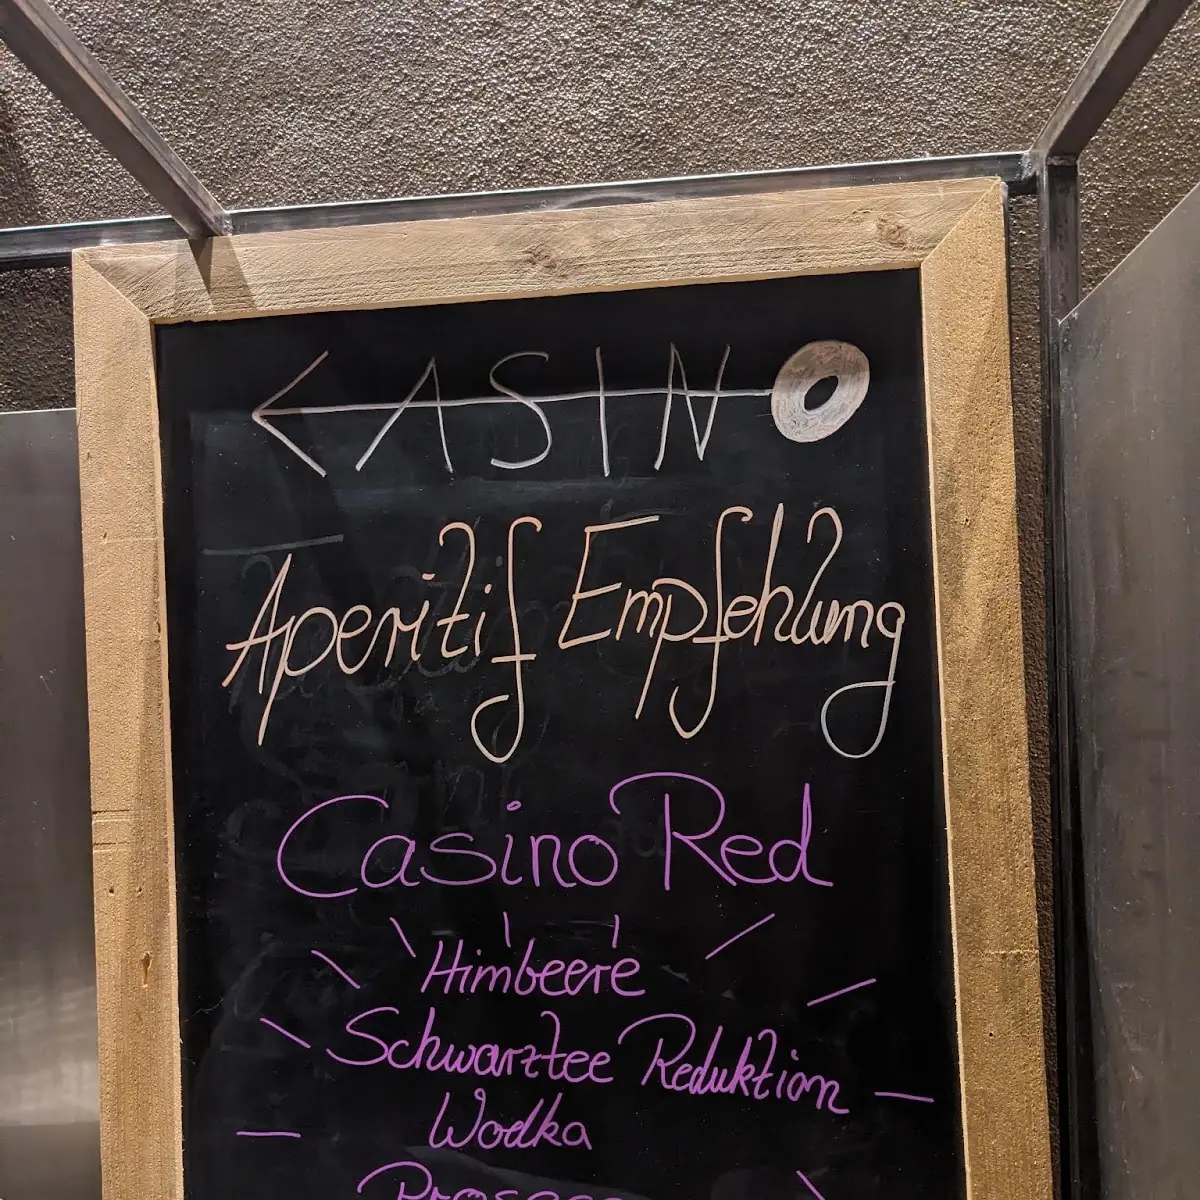 CASINO
Aperitif Empfehlung
Casino Red
Himbeere
Schwarztee Reduktion
Wodka